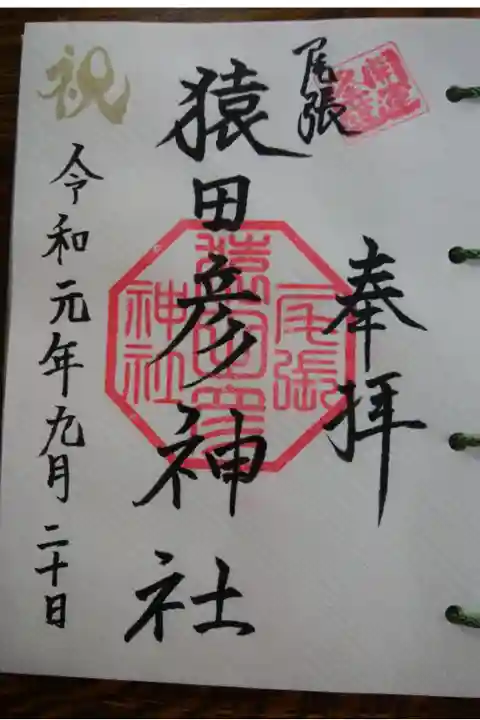 奉拝
尾張
猿田彦神社
尾張
猿田彦
神社
祝
令和元年九月二十日